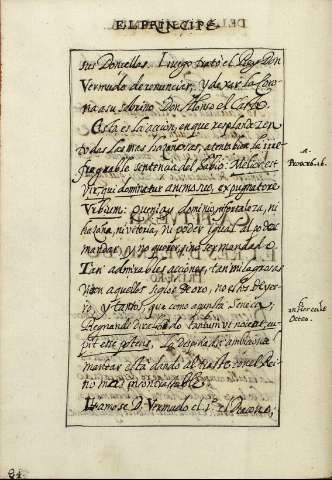 EL PRINCIPE
sus Doncellas. Luego trató el Rey Don
Vermudo de renunciar, y dexar la Coro
na a su sobrino Don Alonso el Casto.
Esta es la accion, en que resplandezen
todas las mas hazañosas, atenta la irre
fragable sentencia del Sabio: Melior est
Vir, qui dominetur animo suo, expugnatore
Vrbium: que no ay dominio, fortaleza, ni
hazaña, ni vitoria, ni poder igual al poder
mandar, y no querer, sino ser mandado.
Tan admirables acciones, tan milagrosas
vian aquellos siglos de oro, no estos de ye
rro, y tantos, que como apunta Seneca,
Regnandi
tantum vt noceat, cu
pit esse potens. La despiadada ambicion de
mandar está dando al traste con el Rei
no mas incontrastable.
Llamose D. Vermudo el 1.º el Diacono,
a.
Prouerb. 16.
in Hercule
Octeo.
84